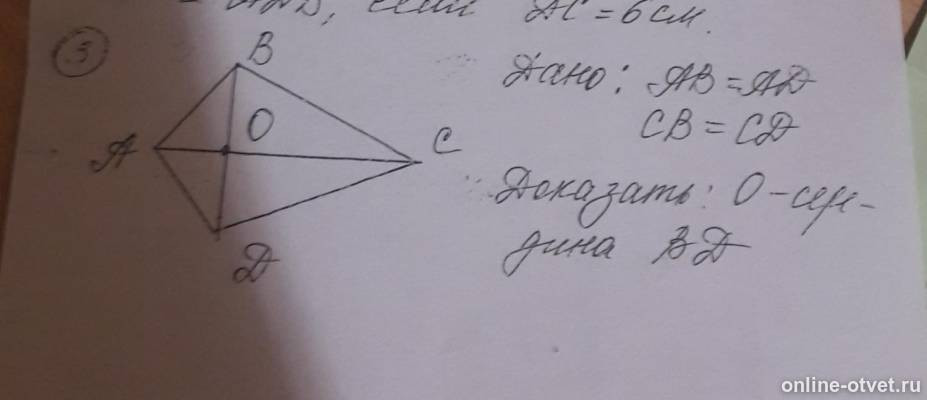 если AC = 6 см.
3
B
O
A
C
D
Дано: AB = AD
CB = CD
Доказать: O - сере-
дина BD
online-otvet.ru